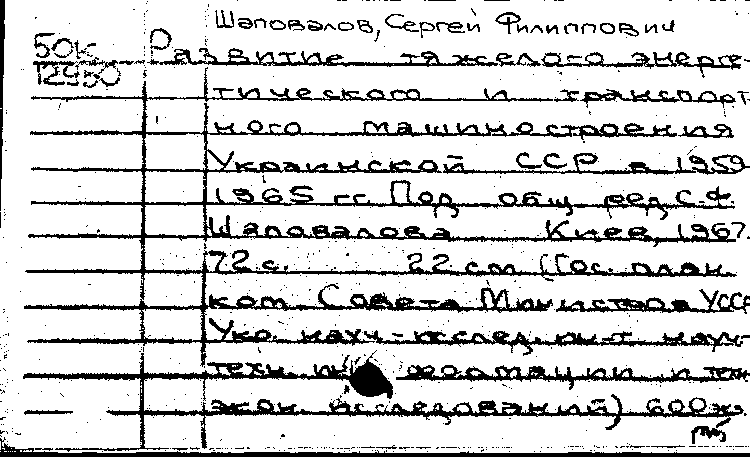 Шаповалов, Сергей Филиппович
50к
12950
Развитие тяжелого энерге-
тического и транспорт
ного машиностроения
Украинской ССР в 1959
1965 гг. Под общ ред С.Ф.
Шаповалова Киев, 1967.
72 с. 22 см (Гос. план.
ком. Совета Министров УССР
Укр. науч-исслед. ин-т науч-
техн. информации и техн
экон. исследований) 600 экз.